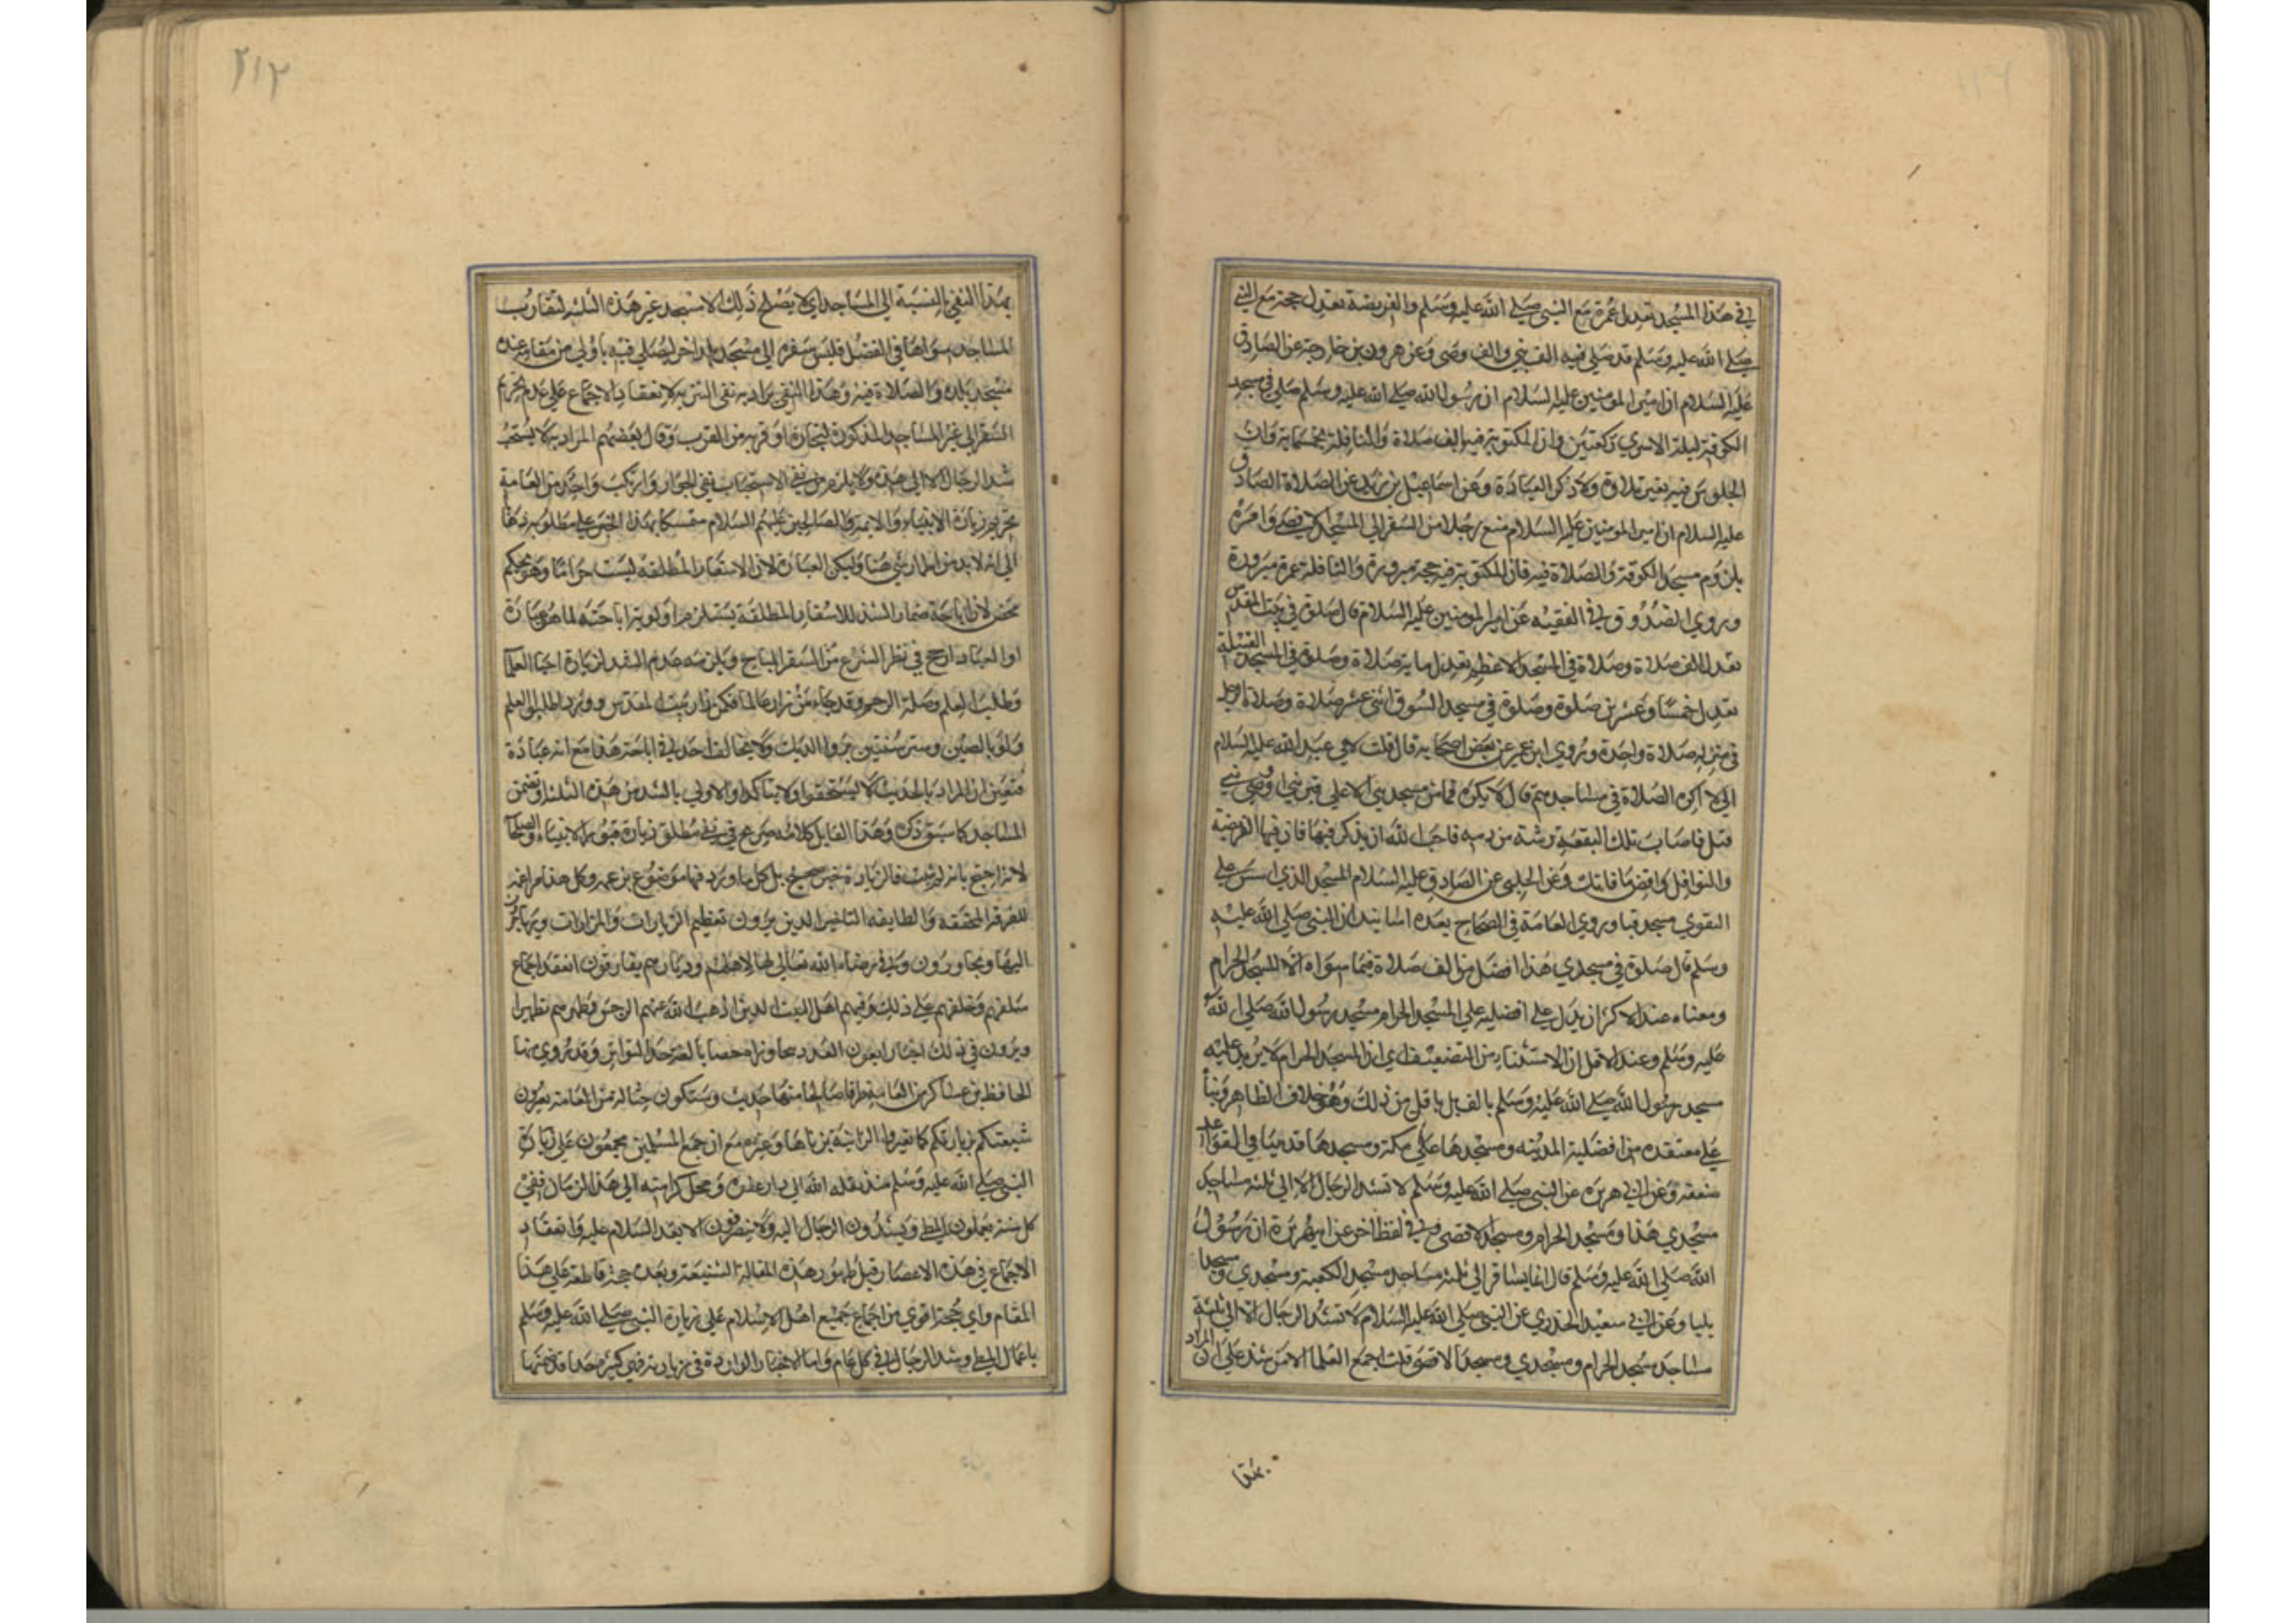 في هذا المسجد تعدل عمرة مع النبي صلي الله عليه وسلم والفريضة تعدل حجة مع النبي
صلي الله عليه وسلم قد صلي فيه الف نبي والف وصي وعن هرون بن خارجة عن الصادق
عليه السلام ان امير المومنين عليه السلام ان رسول الله صلي الله عليه وسلم صلي في مسجد
الكوفة ليلة الاسري ركعتين وان المكتوبة فيه الف صلاة والنافلة بخمسماية وان
الجلوس فيه بغير تلاوة ولا ذكر العبادة وعن اسماعيل بن زيد عن الصادق
عليه السلام ان امير المومنين عليه السلام منع رجلا من السفر الي المسجد الاقصي وامره
بلزوم مسجد الكوفة والصلاة فيه فان المكتوبة فيه حجة مبرورة والنافلة عمرة مبرورة
وروي الصدوق في الفقيه عن امير المومنين عليه السلام قال صلوة في بيت المقدس
تعدل الف صلاة وصلاة في المسجد الاعظم تعدل ماية صلاة وصلوة في المسجد القبيلة
تعدل خمسا وعشرين صلوة وصلوة في مسجد السوق اثني عشر صلاة وصلاة الرجل
في منزله صلاة واحدة وروي ابن عمير عن بعض اصحابه قال قلت لابي عبد الله عليه السلام
اني لا اكره الصلاة في مساجدهم قال لا تكره فما من مسجد بني الا علي قبر نبي او وصي نبي
قتل فاصاب تلك البقعة رشة من دمه فاحب الله ان يذكر فيها فاد فيها الفريضة
والنوافل واقض ما فاتك وعن الحلبي عن الصادق عليه السلام المسجد الذي اسس علي
التقوي مسجد قبا وروي العامة في الصحاح بعدة اسانيد ان النبي صلي الله عليه
وسلم قال صلوة في مسجدي هذا افضل من الف صلاة فيما سواه الا المسجد الحرام
ومعناه عند الاكثر ان يدل علي افضلية علي المسجد الحرام مسجد رسول الله صلي الله
عليه وسلم وعند الاقل ان الاستثناء من التضعيف اي ان المسجد الحرام لا يزيد عليه
مسجد رسول الله صلي الله عليه وسلم بالف بل باقل من ذلك وهو خلاف الظاهر وبناء
علي معتقده من افضلية المدينة ومسجدها علي مكة ومسجدها قد مينا في القواعد
منعه وعن ابي هريرة عن النبي صلي الله عليه وسلم لا تشد الرحال الا الي ثلثة مساجد
مسجدي هذا ومسجد الحرام ومسجد الاقصي وفي لفظ اخر عن ابي هريرة ان رسول
الله صلي الله عليه وسلم قال انما يسافر الي ثلثة مساجد مسجد الكعبة ومسجدي ومسجد
ايليا وعن ابي سعيد الخدري عن النبي صلي الله عليه السلام لا تشد الرحال الا الي ثلثة
مساجد مسجد الحرام ومسجدي ومسجد الاقصي قلت اجمع العلما الا من شذ علي ان المراد
بهذا
٢١٢
بهذا النفي بالنسبة الي المساجد اي لا يصلح ذلك الا لمسجد غير هذه الثلثة لتقارب
المساجد سواها في الفضل فليس سفره الي مسجد بلد اخر ليصلي فيه باولي من مقامه عند
مسجد بلده والصلاة فيه وهذا النفي يراد به نفي التنزيه لانعقاد الاجماع علي عدم تحريم
السفر الي غير المساجد المذكورة لتجارة او قربة من القرب وقال بعضهم المراد به لا يستحب
شد الرحال الا الي هذه ولا يلزم من نفي الاستحباب نفي الجواز وارتكب واحد من العامة
تحريم زيارة الانبياء والايمة والصالحين عليهم السلام متمسكا بهذا الخبر علي مطلوبه ذهابا
الي انه لابد من اضمار شيء هنا وليكن العبادة لان الاسفار المطلقة ليست حراما وهو تحكم
محض لان اباحة ضمار الشد للاسفار المطلقة يستلزم اولوية اباحته لما هو عبادة
اذ العبادة ارجح في نظر الشرع من السفر المباح ويلزمه عدم الشد لزيارة احياء العلما
وطلب العلم وصلة الرحم وقد جاء من زار عالما فكمن زار بيت المقدس وورد اطلبوا العلم
ولو بالصين وسر سنتين بر والديك ولا يخالف احد في اباحة هذا مع انه عبادة
فتعين ان المراد بالحديث لا يستحق اولا يتاكد او الاولي بالشد من هذه الثلثة او تضمر
المساجد كما سبق ذكره وهذا القايل كلامه صريح في نفي مطلق زيارة قبور الانبياء والصلحا
لانه احتج بانه لم يثبت في الزيارة خبر صحيح بل كل ما ورد فيها موضوع بزعمه وكل هذا مراغمة
للفرقة المحققة والطايفة الناجية الذين يرون تعظيم الزيارات والمزارات ويهاجرون
اليها ويجاورون وفي مرضاة الله تعالي لها الاهلهم وديارهم يفارقون انعقد اجماع
سلفهم وخلفهم علي ذلك وفيهم اهل البيت الذين اذهب الله عنهم الرجس وطهرهم تطهيرا
ويروون في ذلك اخبارا يفوت العدد وتجاوز احصاءها لغير حد التواتر وقد روي منها
الحافظ بن عساكر من العامة طرفا صالحا منها حديث وستكون حثالة من العامة يعيرون
شيعتكم بزيارتكم كما تعير الزانية بزناها وغيره مع ان جميع المسلمين مجمعون علي زيارة
النبي صلي الله عليه وسلم منذ نقله الله الي دار عفوه ومحل كرامته الي هذا الزمان ففي
كل سنة يعملون المطي ويشدون الرحال اليه ولا ينصرفون الا بعد السلام عليه وانعقاد
الاجماع في هذه الاعصار قبل ظهور هذه المقالة الشنيعة وبعده حجة قاطعة علي هذا
المقام واي حجة اقوي من اجماع جميع اهل الاسلام علي زيارة النبي صلي الله عليه وسلم
باعمال المطي وشد الرحال في كل عام واما الاخبار الواردة في زيارته فهي كثيرة جدا